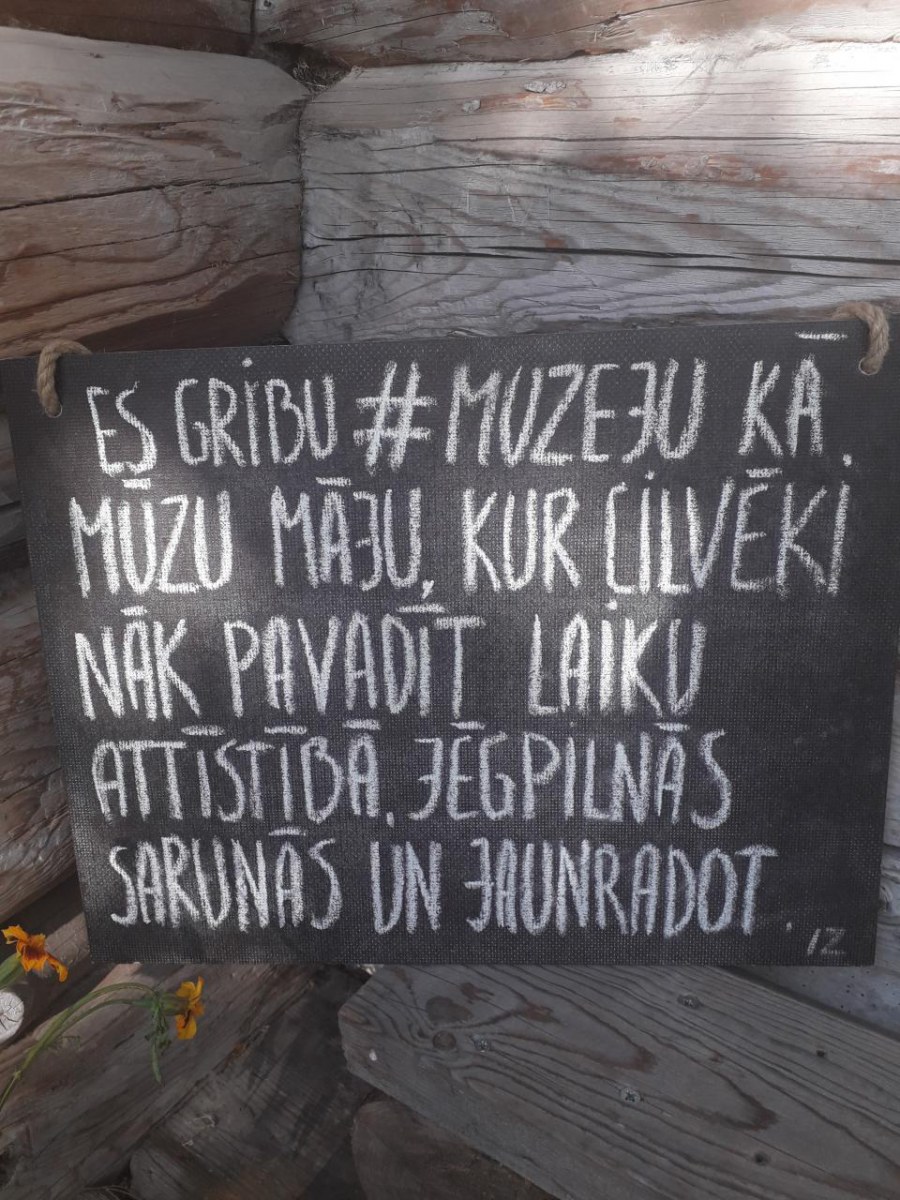 ES GRIBU #MUZEJU KĀ
MŪZU MĀJU, KUR CILVĒKI
NĀK PAVADĪT LAIKU
ATTĪSTĪBĀ, JĒGPILNĀS
SARUNĀS UN JAUNRADOT.
IZ